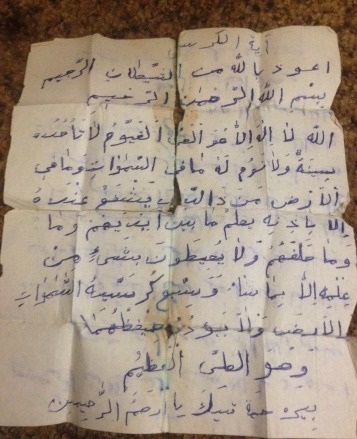 آية الكرسي
اعوذ بالله من الشيطان الرحيم
بسم الله الرحمن الرحيم
الله لا إله إلا هو الحي القيوم لا تأخذه
سنة ولا نوم له ما في السموات وما في
الأرض من ذا الذي يشفع عنده
إلا بإذنه يعلم ما بين أيديهم وما
وما خلفهم ولا يحيطون بشيء من
علمه إلا بما شاء وسع كرسيه السموات
الأرض ولا يؤده حفظهما
وهو العلي العظيم
يا ارحم الرحمين